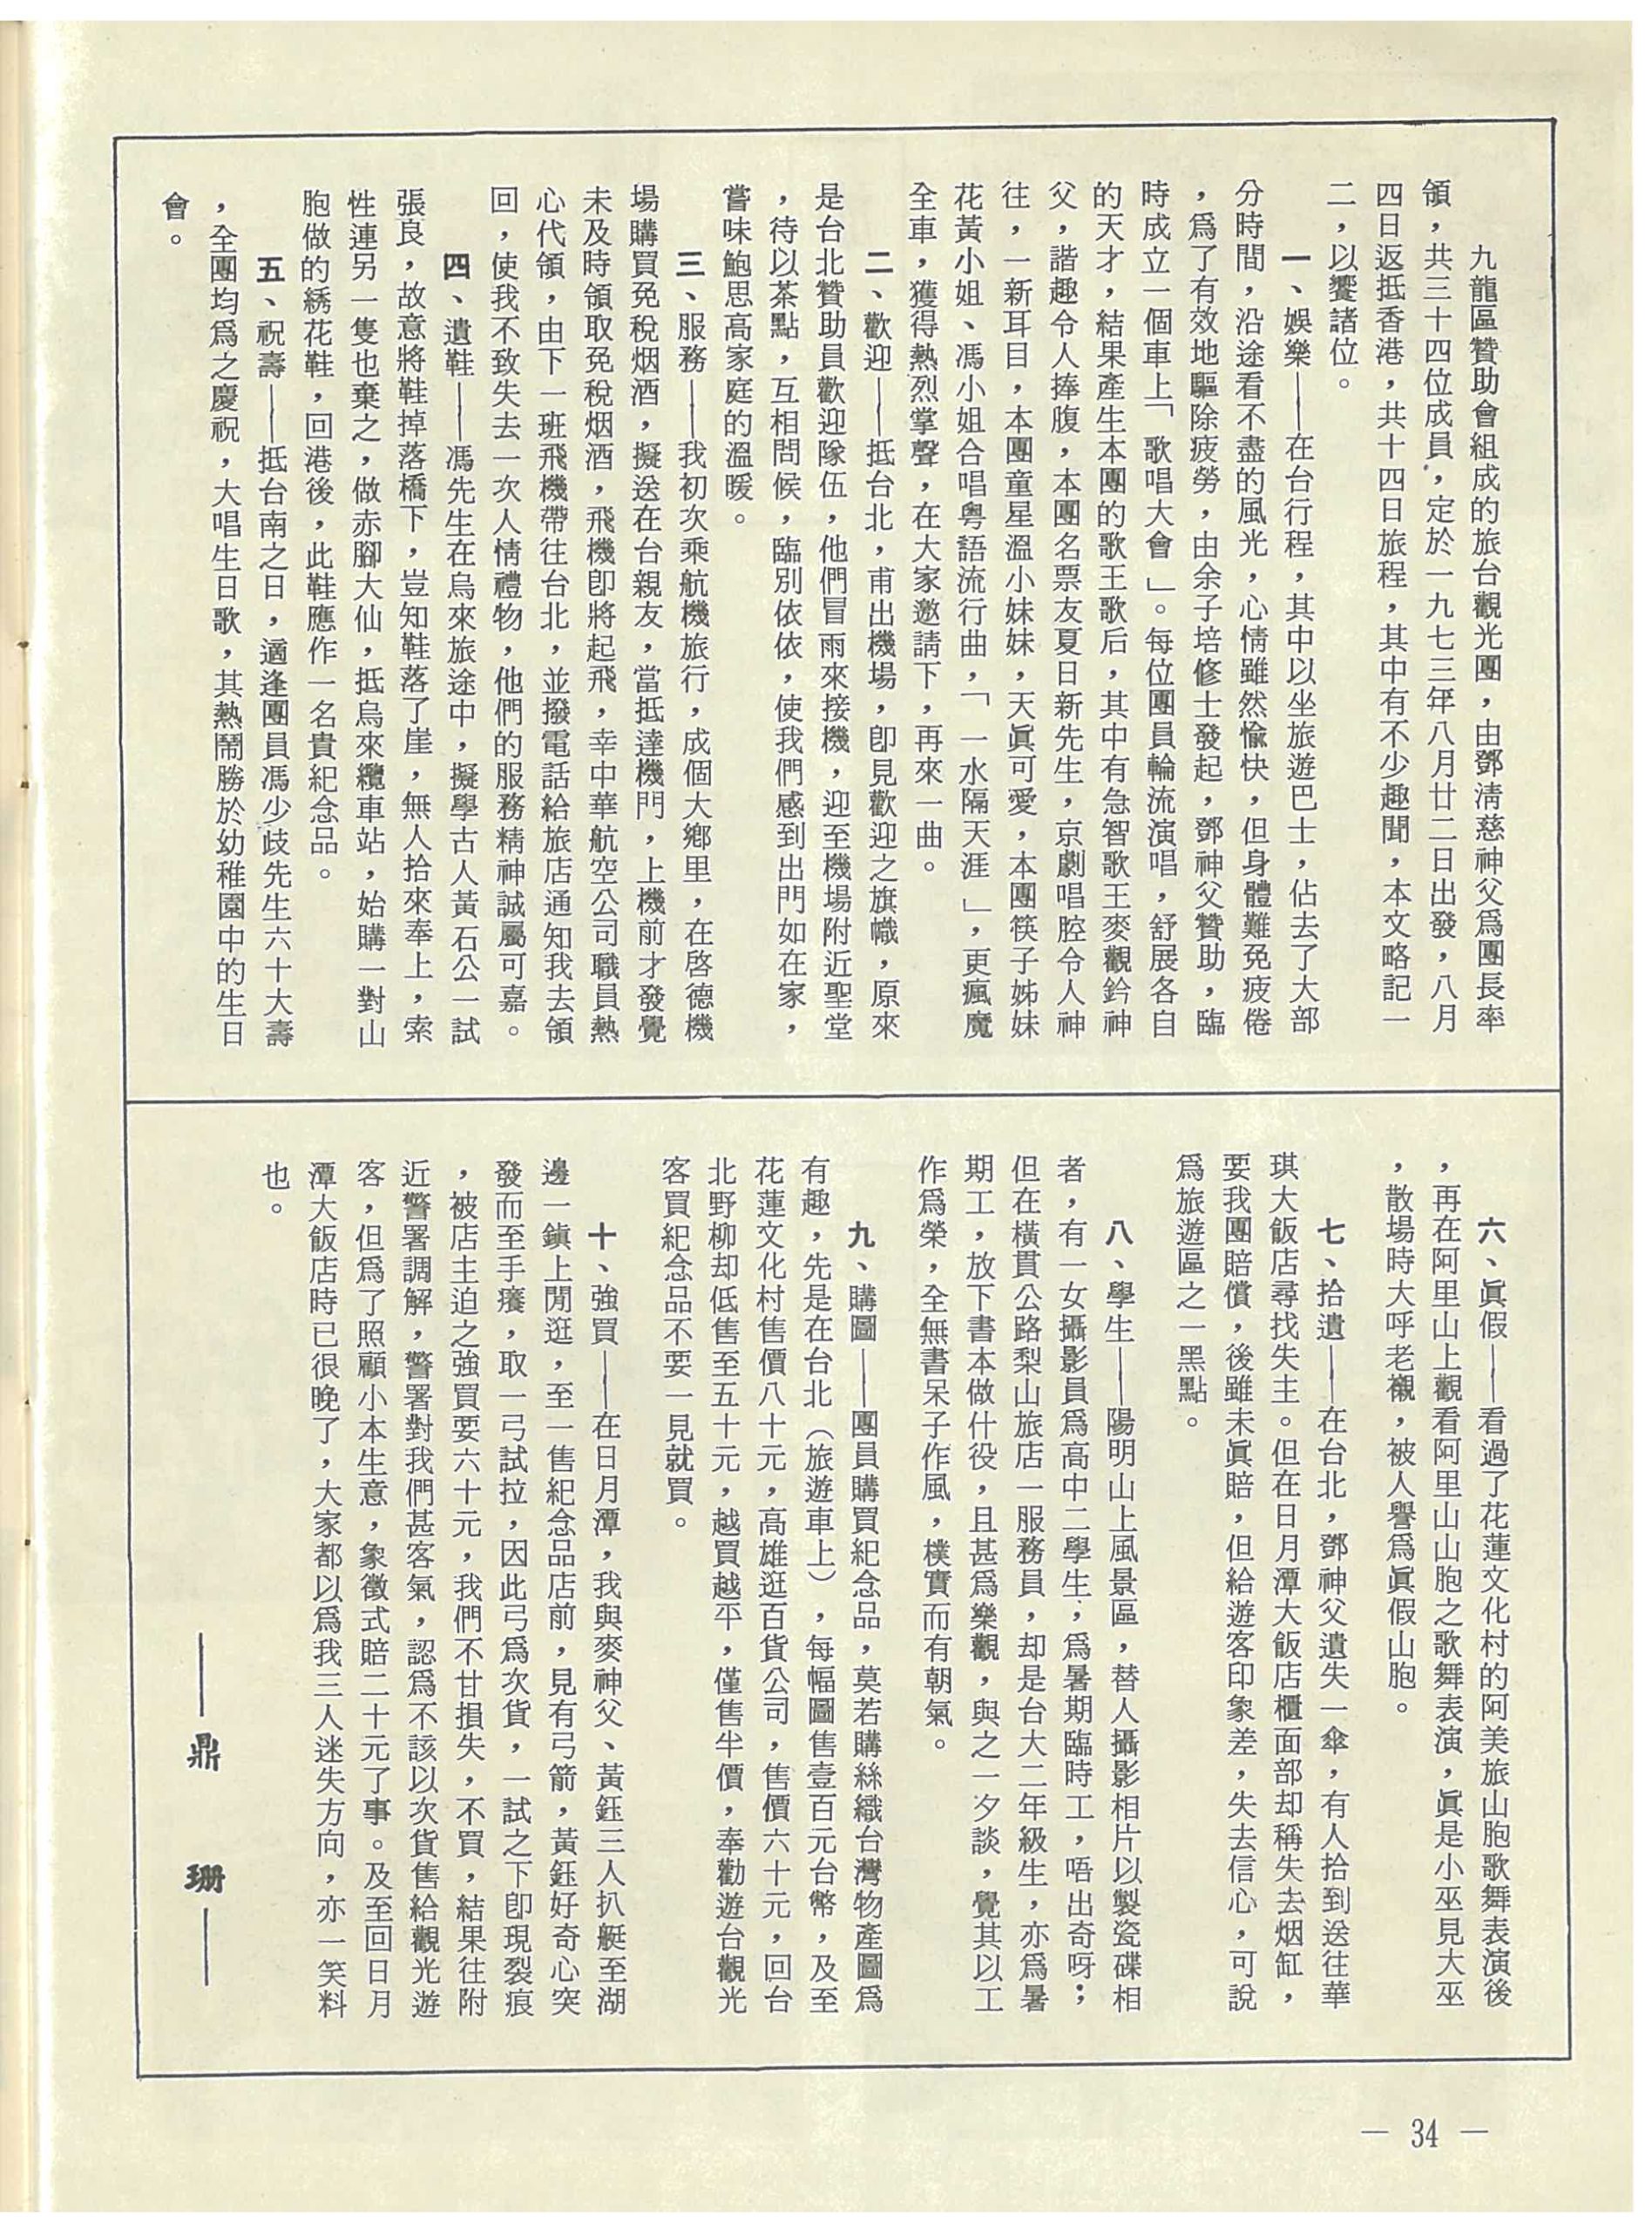 九龍區贊助會組成的旅台觀光團，由鄧淸慈神父爲團長率
領，共三十四位成員，定於一九七三年八月廿二日出發，八月
四日返抵香港，共十四日旅程，其中有不少趣聞，本文略記一
二，以饗諸位。
一、娛樂——在台行程，其中以坐旅遊巴士，佔去了大部
分時間，沿途看不盡的風光，心情雖然愉快，但身體難免疲倦
，爲了有效地驅除疲勞，由余子培修士發起，鄧神父贊助，臨
時成立一個車上「歌唱大會」。每位團員輪流演唱，舒展各自
的天才，結果產生本團的歌王歌后，其中有急智歌王麥觀鈐神
父，諧趣令人捧腹，本團名票友夏日新先生，京劇唱腔令人神
往，一新耳目，本團童星溫小妹妹，天眞可愛，本團筷子姊妹
花黃小姐、馮小姐合唱粤語流行曲，「一水隔天涯」，更瘋魔
全車，獲得熱烈掌聲，在大家邀請下，再來一曲。
二、歡迎——抵台北，甫出機場，卽見歡迎之旗幟，原來
是台北贊助員歡迎隊伍，他們冒雨來接機，迎至機場附近聖堂
，待以茶點，互相問候，臨別依依，使我們感到出門如在家，
嘗味鮑思高家庭的溫暖。
三、服務——我初次乘航機旅行，成個大鄉里，在啓德機
場購買免稅烟酒，擬送在台親友，當抵達機門，上機前才發覺
未及時領取免稅烟酒，飛機卽將起飛，幸中華航空公司職員熱
心代領，由下一班飛機帶往台北，並撥電話給旅店通知我去領
回，使我不致失去一次人情禮物，他們的服務精神誠屬可嘉。
四、遺鞋——馮先生在烏來旅途中，擬學古人黃石公一試
張良，故意將鞋掉落橋下，豈知鞋落了崖，無人拾來奉上，索
性連另一隻也棄之，做赤腳大仙，抵烏來纜車站，始購一對山
胞做的綉花鞋，回港後，此鞋應作一名貴紀念品。
五、祝壽——抵台南之日，適逢團員馮少歧先生六十大壽
，全團均爲之慶祝，大唱生日歌，其熱鬧勝於幼稚園中的生日
會。
六、眞假——看過了花蓮文化村的阿美旅山胞歌舞表演後
，再在阿里山上觀看阿里山山胞之歌舞表演，眞是小巫見大巫
，散場時大呼老襯，被人譽爲眞假山胞。
七、拾遺——在台北，鄧神父遺失一傘，有人拾到送往華
琪大飯店尋找失主。但在日月潭大飯店櫃面部却稱失去烟缸，
要我團賠償，後雖未眞賠，但給遊客印象差，失去信心，可說
爲旅遊區之一黑點。
八、學生——陽明山上風景區，替人攝影相片以製瓷碟相
者，有一女攝影員爲高中二學生，爲暑期臨時工，唔出奇呀；
但在橫貫公路梨山旅店一服務員，却是台大二年級生，亦爲暑
期工，放下書本做什役，且甚爲樂觀，與之一夕談，覺其以工
作爲榮，全無書呆子作風，樸實而有朝氣。
九、購圖——團員購買紀念品，莫若購絲織台灣物產圖爲
有趣，先是在台北（旅遊車上），每幅圖售壹百元台幣，及至
花蓮文化村售價八十元，高雄逛百貨公司，售價六十元，回台
北野柳却低售至五十元，越買越平，僅售半價，奉勸遊台觀光
客買紀念品不要一見就買。
十、強買——在日月潭，我與麥神父、黃鈺三人扒艇至湖
邊一鎭上閒逛，至一售紀念品店前，見有弓箭，黃鈺好奇心突
發而至手癢，取一弓試拉，因此弓爲次貨，一試之下卽現裂痕
，被店主迫之強買要六十元，我們不甘損失，不買，結果往附
近警署調解，警署對我們甚客氣，認爲不該以次貨售給觀光遊
客，但爲了照顧小本生意，象徵式賠二十元了事。及至回日月
潭大飯店時已很晚了，大家都以爲我三人迷失方向，亦一笑料
也。
——鼎 珊——
— 34 —